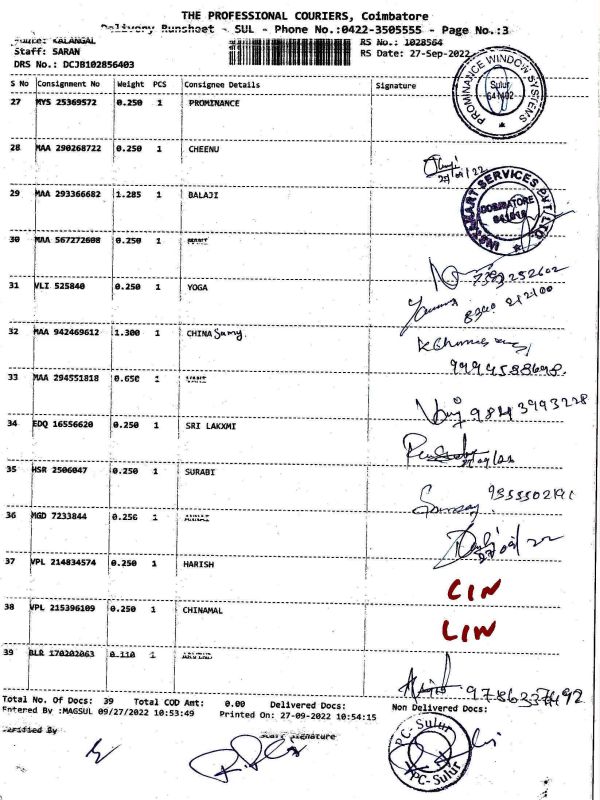 THE PROFESSIONAL COURIERS, Coimbatore
Delivery Runsheet - SUL - Phone No.:0422-3505555 - Page No.:3
KALANGAL
RS No.: 1028564
Staff: SARAN
RS Date: 27-Sep-2022
DRS No.: DCJB102856403
S No Consignment No Weight PCS Consignee Details Signature
27 MYS 25369572 0.250 1 PROMINANCE
PROMINANCE WINDOW SYSTEMS
Sulur
641402
28 MAA 290268722 0.250 1 CHEENU
27/09/22
29 MAA 293366682 1.285 1 BALAJI
INSTAKART SERVICES PVT. LTD
COIMBATORE
30 MAA 567272608 0.250 1
31 VLI 525840 0.250 1 YOGA
32 MAA 942469612 1.300 1 CHINA Samy.
9994588698.
33 MAA 294551818 0.650 1 VANI
9843993228
34 EDQ 16556620 0.250 1 SRI LAKXMI
35 HSR 2506047 0.250 1 SURABI
36 MGD 7233844 0.250 1 ANNAI
27/09/22
37 VPL 214834574 0.250 1 HARISH
CIN
38 VPL 215396109 0.250 1 CHINAMAL
LIN
39 BLR 170202063 0.110 1 ARVIND
Total No. Of Docs: 39 Total COD Amt: 0.00 Delivered Docs: Non Delivered Docs:
Entered By :MAGSUL 09/27/2022 10:53:49 Printed On: 27-09-2022 10:54:15
Verified By Staff Signature
PC-Sulur
PC-Sulur